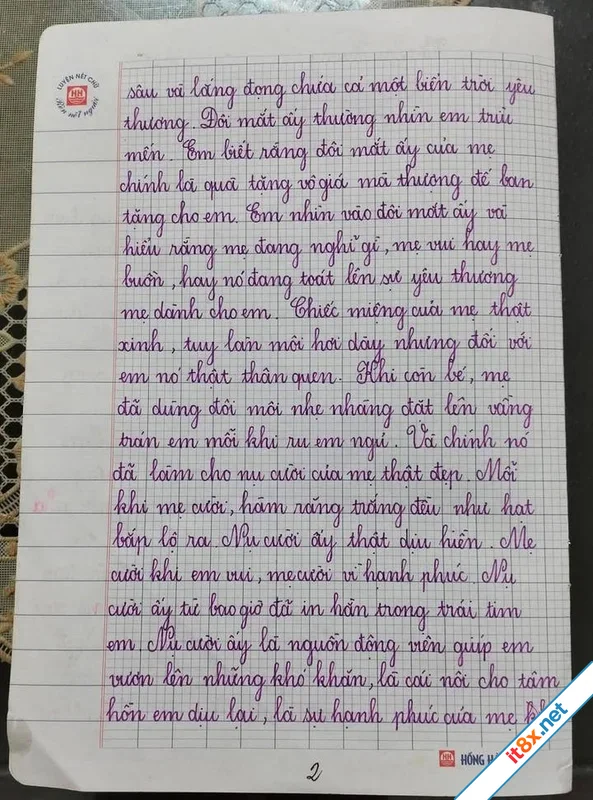 LUYỆN NÉT CHỮ
HH
Rèn nết người
sâu và lắng đọng chứa cả một biển trời yêu
thương. Đôi mắt ấy thường nhìn em trìu
mến. Em biết rằng đôi mắt ấy của mẹ
chính là quà tặng vô giá mà thượng đế ban
tặng cho em. Em nhìn vào đôi mắt ấy và
hiểu rằng mẹ đang nghĩ gì, mẹ vui hay mẹ
buồn, hay nó đang toát lên sự yêu thương
mẹ dành cho em. Chiếc miệng của mẹ thật
xinh, tuy làn môi hơi dày nhưng đối với
em nó thật thân quen. Khi còn bé, mẹ
đã dùng đôi môi nhẹ nhàng đặt lên vầng
trán em mỗi khi ru em ngủ. Và chính nó
đã làm cho nụ cười của mẹ thật đẹp. Mỗi
khi mẹ cười, hàm răng trắng đều như hạt
bắp lộ ra. Nụ cười ấy thật dịu hiền. Mẹ
cười khi em vui, mẹ cười vì hạnh phúc. Nụ
cười ấy từ bao giờ đã in hằn trong trái tim
em. Nụ cười ấy là nguồn động viên giúp em
vươn lên những khó khăn, là cái nôi cho tâm
hồn em dịu lại, là sự hạnh phúc của mẹ
HH HỒNG
2
it8x.net